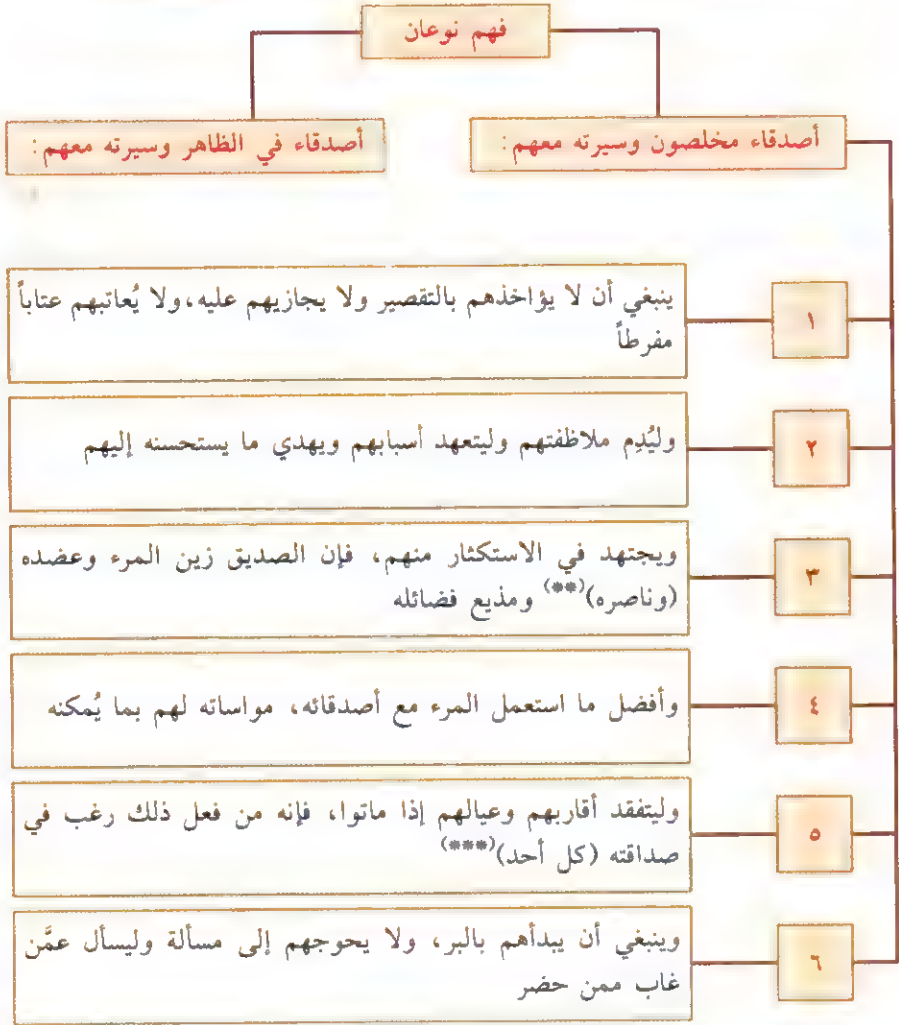 فهم نوعان
أصدقاء مخلصون وسيرته معهم:
أصدقاء في الظاهر وسيرته معهم:
١
ينبغي أن لا يؤاخذهم بالتقصير ولا يجازيهم عليه، ولا يُعاتبهم عتاباً
مفرطاً
٢
وليُدِم ملاظفتهم وليتعهد أسبابهم ويهدي ما يستحسنه إليهم
٣
ويجتهد في الاستكثار منهم، فإن الصديق زين المرء وعضده
(وناصره)(**) ومذيع فضائله
٤
وأفضل ما استعمل المرء مع أصدقائه، مواساته لهم بما يُمكنه
٥
وليتفقد أقاربهم وعيالهم إذا ماتوا، فإنه من فعل ذلك رغب في
صداقته (كل أحد)(***)
٦
وينبغي أن يبدأهم بالبر، ولا يحوجهم إلى مسألة وليسأل عمَّن
غاب ممن حضر